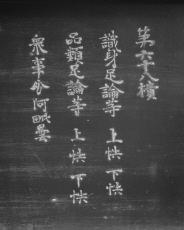 第六十八横
識身足論等　上帙　下帙
品類足論等　上帙　下帙
衆事分阿毗曇